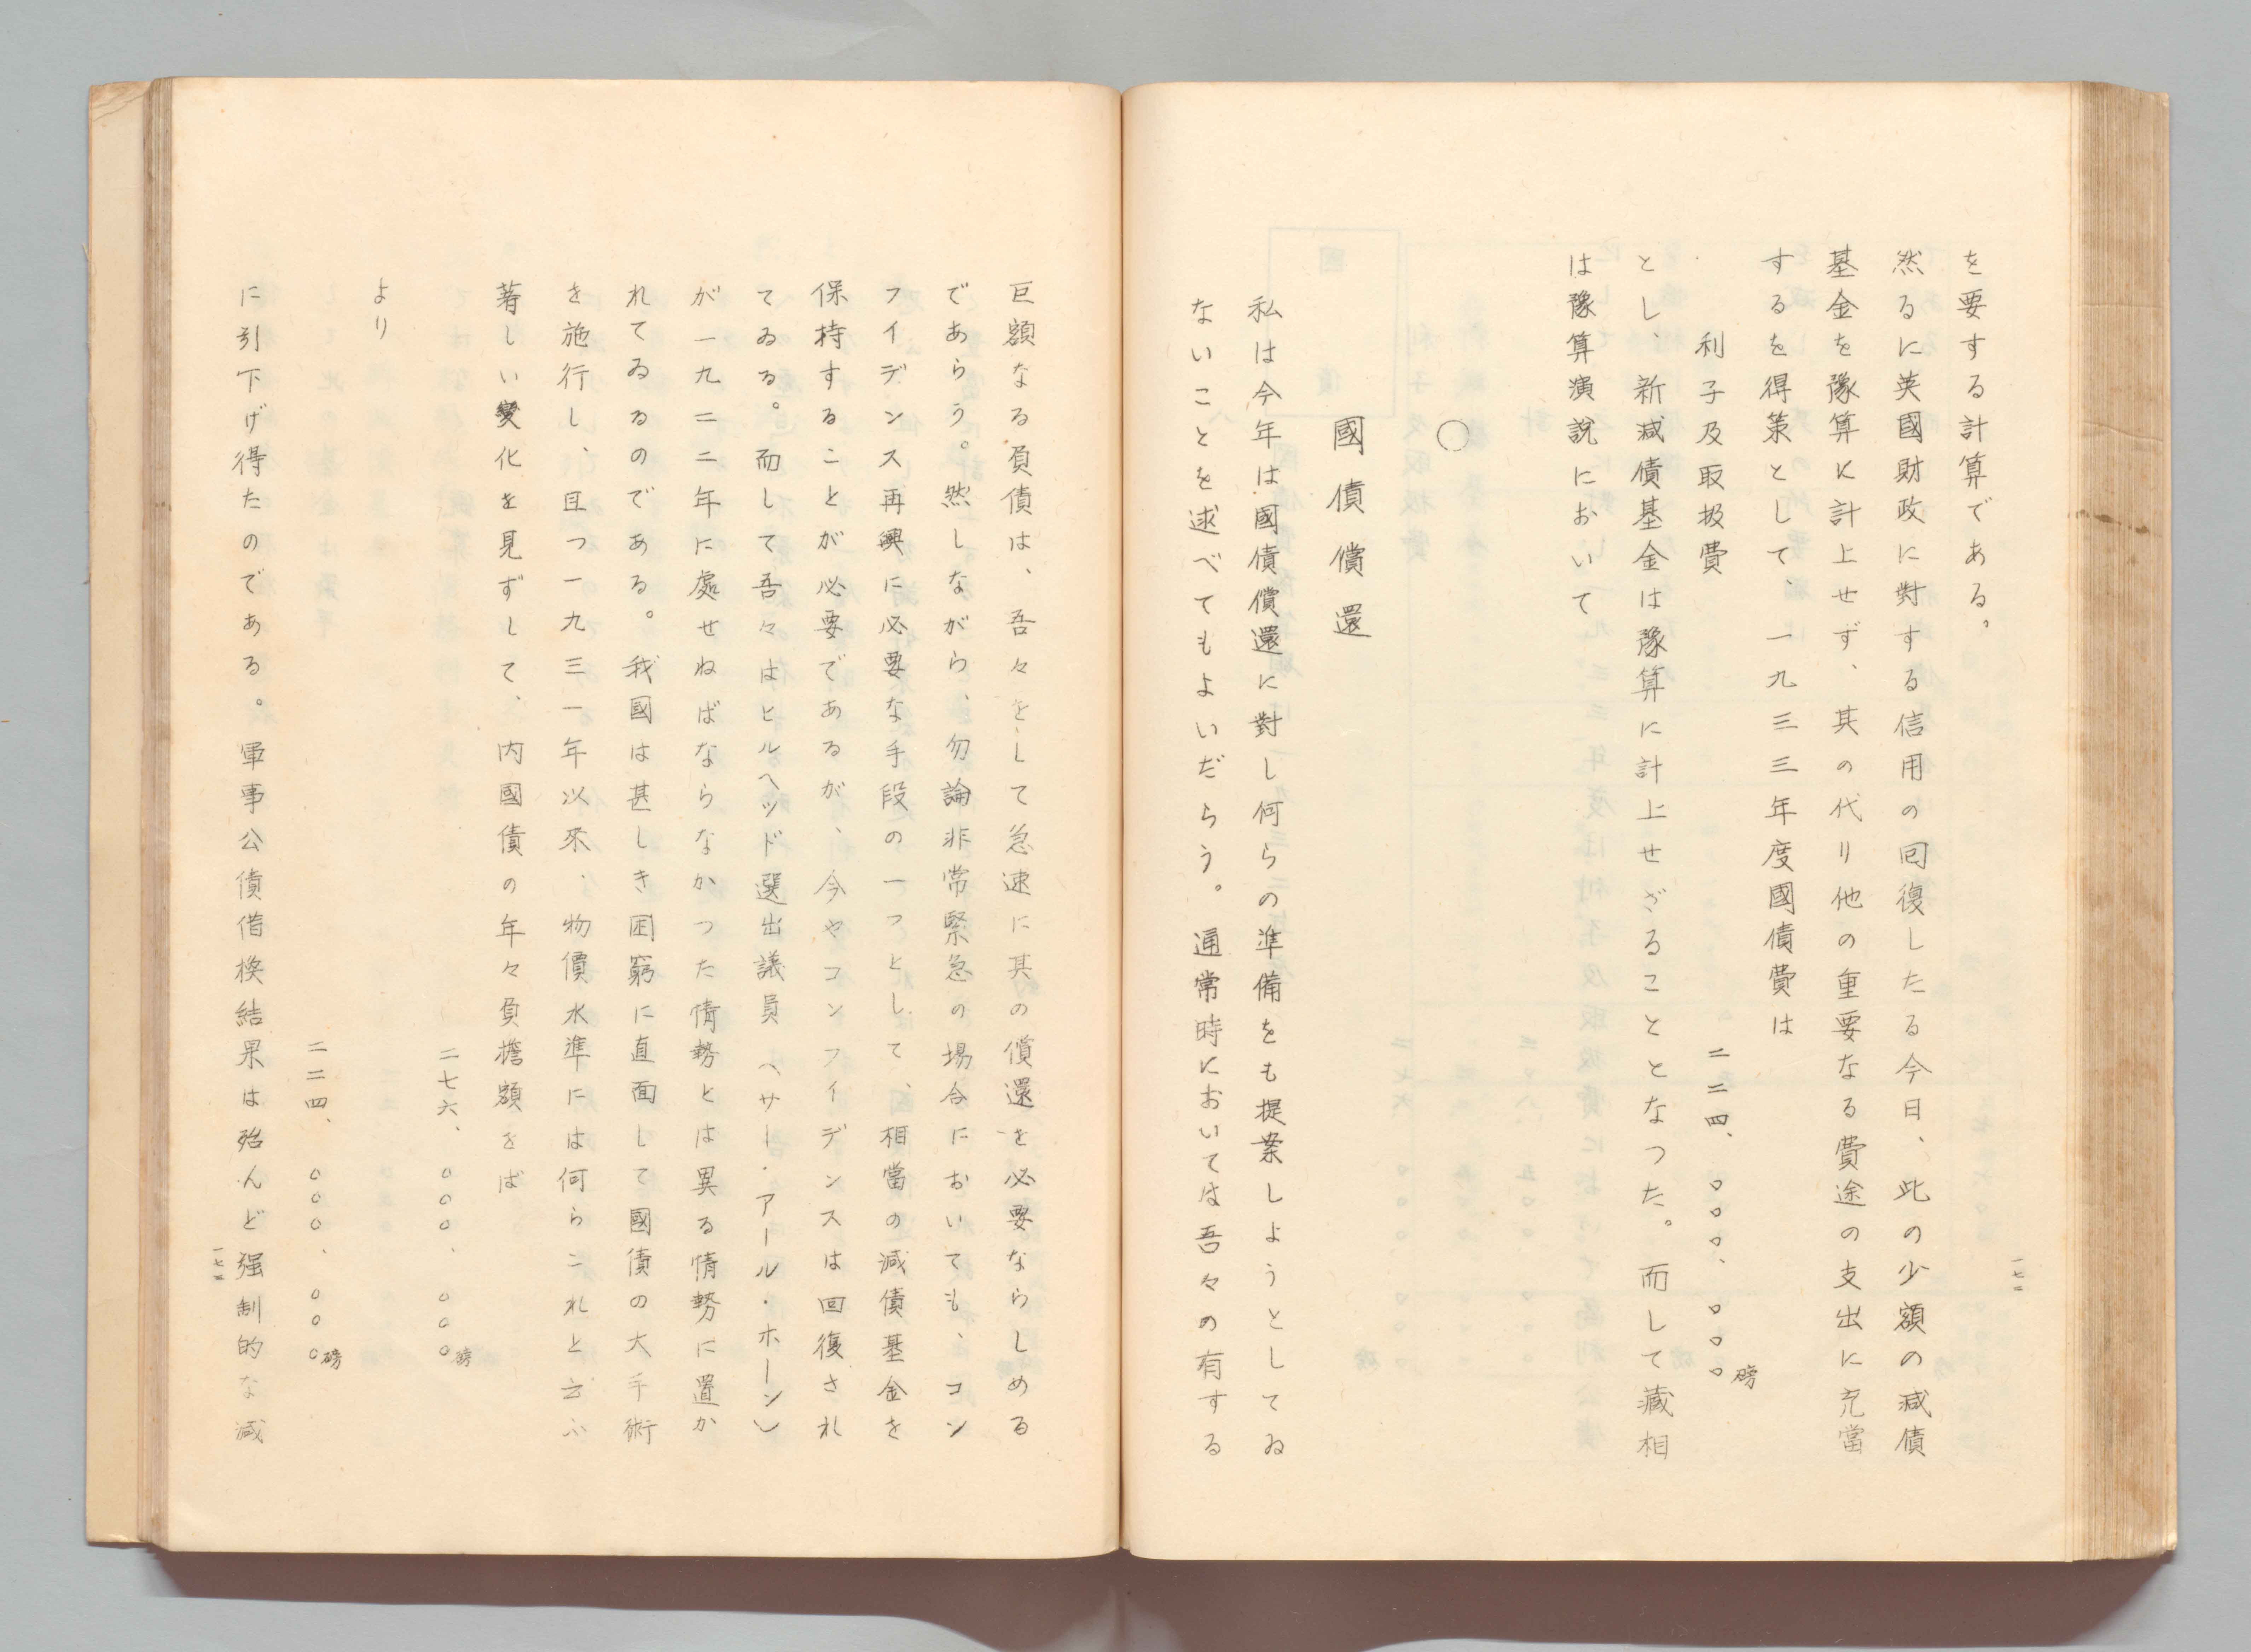 を要する計算である。
然るに英國財政に對する信用の回復したる今日、此の少額の減債
基金を豫算に計上せず、其の代り他の重要なる費途の支出に充當
するを得策として、一九三三年度國債費は
利子及取扱費 二二四、〇〇〇、〇〇〇磅
とし、新減債基金は豫算に計上せざることとなつた。而して藏相
は豫算演説において
〇
國債償還
私は今年は國債償還に對し何らの準備をも提案しようとしてゐ
ないことを逑べてもよいだらう。通常時においては吾々の有する
一七二
巨額なる負債は、吾々をして急速に其の償還を必要ならしめる
であらう。然しながら、勿論非常緊急の場合においても、コン
フイデンス再興に必要な手段の一つとして、相當の減債基金を
保持することが必要であるが、今やコンフイデンスは回復され
てゐる。而して吾々はヒルヘッド選出議員(サー・アール・ホーン)
が一九二二年に處せねばならなかつた情勢とは異る情勢に置か
れてゐるのである。我國は甚しき困窮に直面して國債の大手術
を施行し、且つ一九三一年以來、物價水準には何らこれと云ふ
著しい變化を見ずして、内國債の年々負擔額をば
二七六、〇〇〇、〇〇〇磅
より
二二四、〇〇〇、〇〇〇磅
に引下げ得たのである。軍事公債借換結果は殆んど强制的な減
一七三